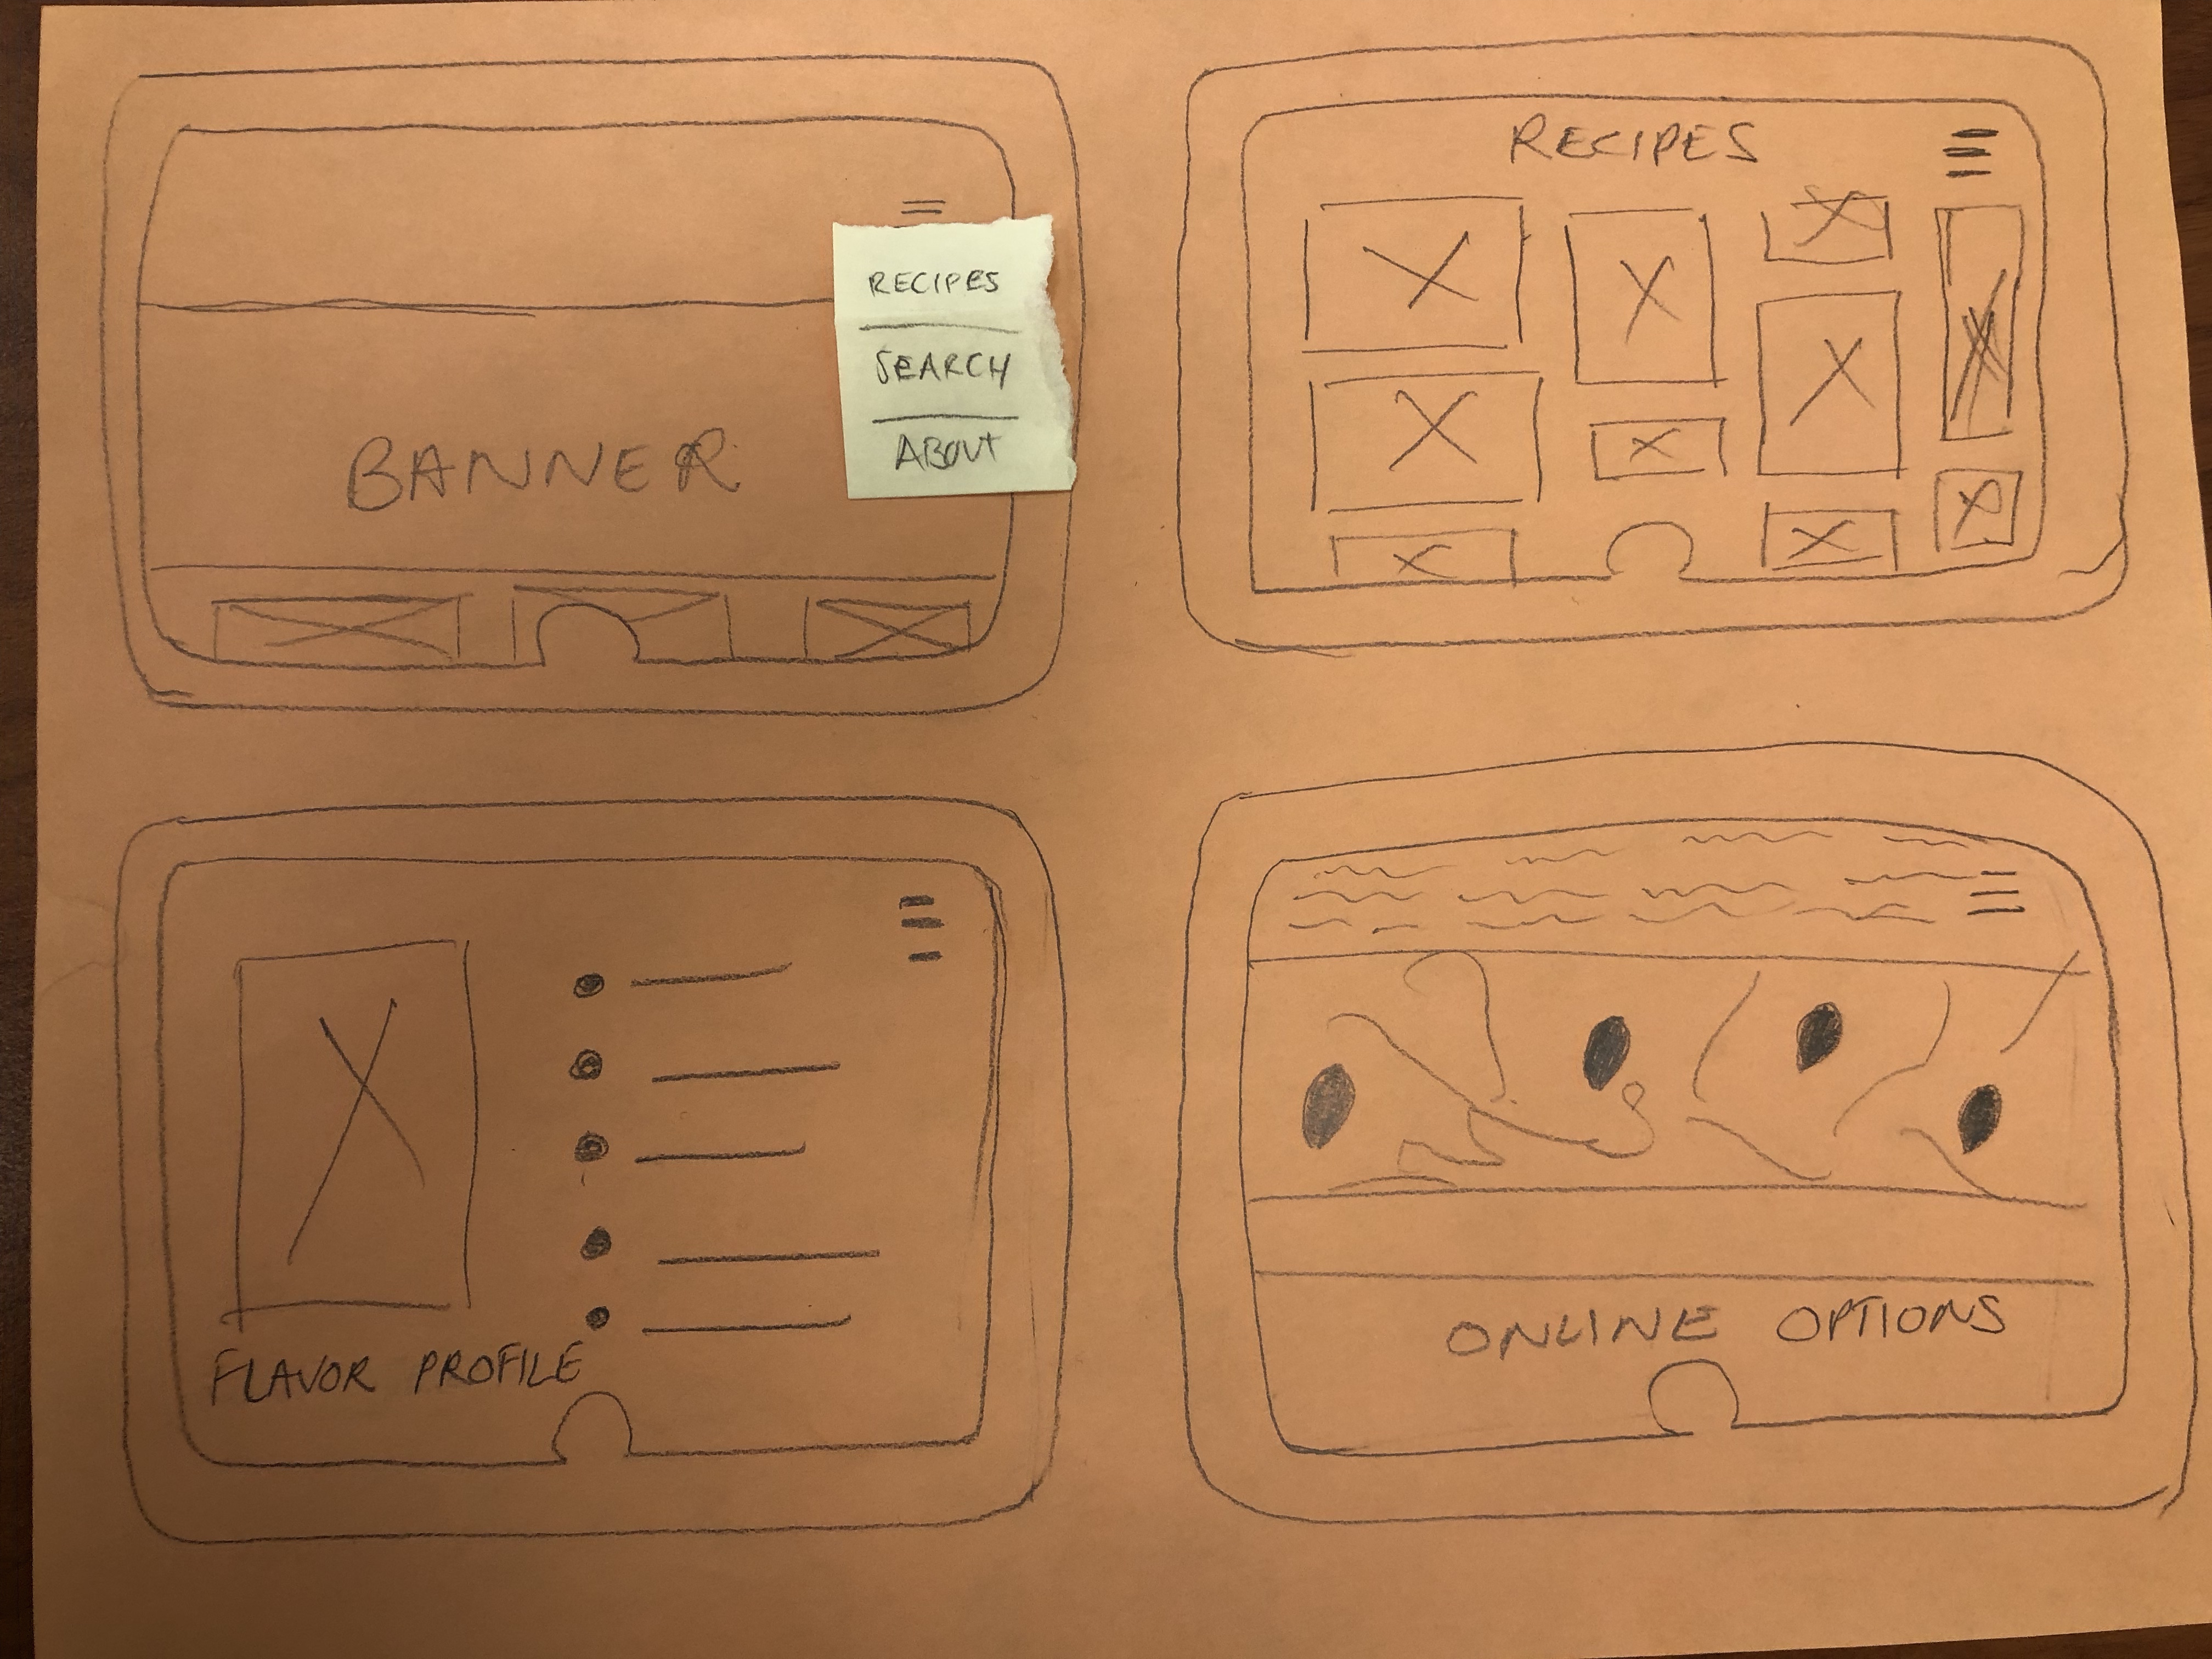 RECIPES
SEARCH
ABOUT
BANNER
RECIPES
FLAVOR PROFILE
ONLINE OPTIONS